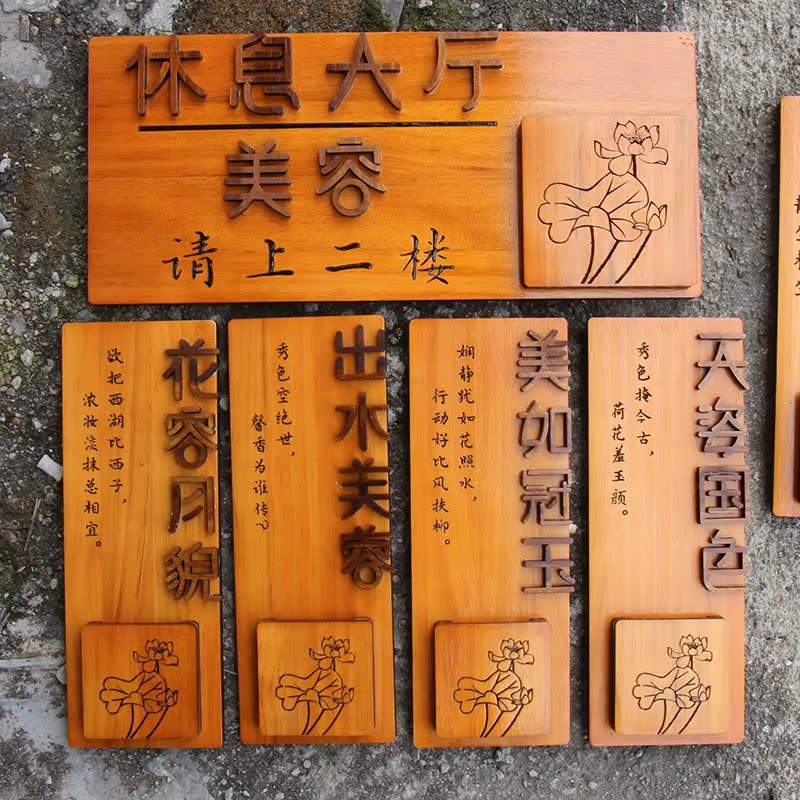 休息大厅
美容
请上二楼
花容月貌
欲把西湖比西子，
浓妆淡抹总相宜。
出水芙蓉
秀色空绝世，
馨香为谁传?
美如冠玉
娴静犹如花照水，
行动好比风扶柳。
天姿国色
秀色掩今古，
荷花羞玉颜。